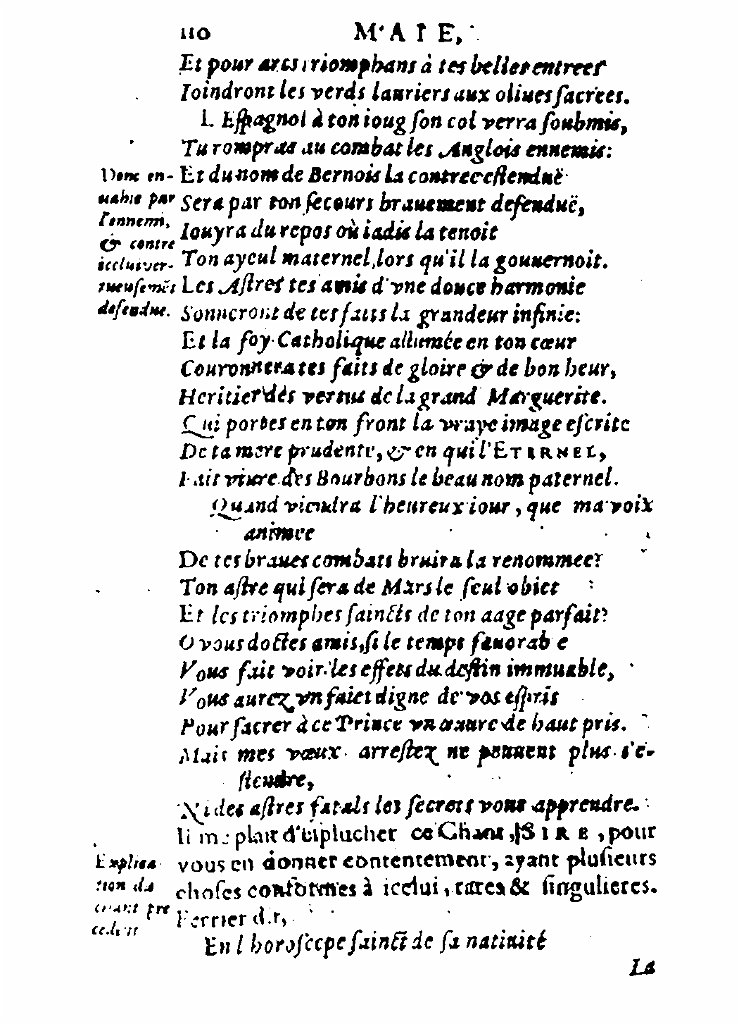 110 MAIE,
Et pour arcs triomphans à tes belles entrees
Ioindront les verds lauriers aux oliues sacrees.
L Espagnol à ton ioug son col verra soubmis,
Tu rompras au combat les Anglois ennemis:
Et du nom de Bernois la contree estenduë
Sera par ton secours brauement defenduë,
Iouyra du repos où iadis la tenoit
Ton ayeul maternel, lors qu'il la gouuernoit.
Les Astres tes amis d'vne douce harmonie
Sonneront de tes faits la grandeur infinie:
Et la foy Catholique allumée en ton cœur
Couronnera tes faits de gloire & de bon heur,
Heritier des vertus de la grand Marguerite.
Qui portes en ton front la vraye image escrite
De ta mere prudente, & en qui l'ETERNEL,
Fait viure des Bourbons le beau nom paternel.
Quand viendra l'heureux iour, que ma voix
animee
De tes braues combats bruira la renommee?
Ton astre qui sera de Mars le seul obiet
Et les triomphes saincts de ton aage parfait?
O vous doctes amis, si le temps fauorab e
Vous fait voir les effets du destin immuable,
Vous aurez vn faict digne de vos espris
Pour sacrer à ce Prince vn œuure de haut pris.
Mais mes vœux arrestez ne peuuent plus s'e-
stendre,
Ni des astres fatals les secrets vous apprendre.
Il me plait d'éplucher ce Chant, SIRE, pour
vous en donner contentement, ayant plusieurs
choses conformes à icelui, rares & singulieres.
Ferrier dit,
En l horoscope sainct de sa natiuité
La
Donc en-
uahie par
l'ennemi,
& contre
icelui ver-
tueusemēt
defendue.
Explica
tion du
chant pre
cedent